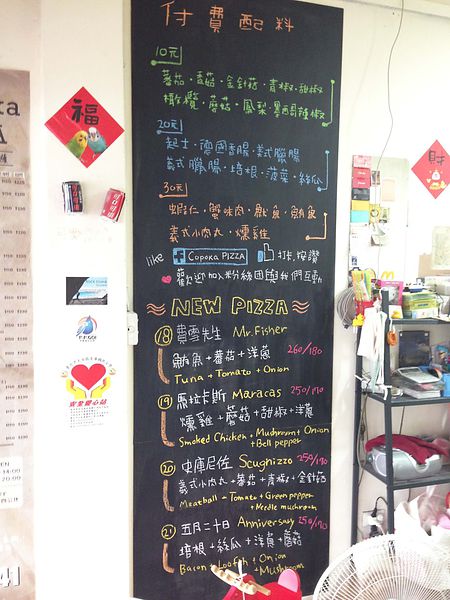 付費配料
10元
蕃茄·香菇·金針菇·青椒·甜椒
橄欖·蘑菇·鳳梨·墨西哥辣椒
20元
起士·德國香腸·美式臘腸
義式臘腸·培根·菠菜·絲瓜
30元
蝦仁·蟹味肉·魷魚·鮪魚
義式小肉丸·燻雞
like f Copoka PIZZA 打卡.按讚
歡迎加入粉絲團與我們互動
NEW PIZZA
18 費雪先生 Mr. Fisher
鮪魚+蕃茄+洋蔥 260/180
Tuna + Tomato + Onion
19 馬拉卡斯 Maracas 250/170
燻雞+蘑菇+甜椒+洋蔥
Smoked Chicken + Mushroom + Onion
+ Bell pepper
20 史庫尼佐 Scugnizzo 250/170
義式小肉丸+蕃茄+青椒+金針菇
Meatball + Tomato + Green pepper
+ Needle mushroom
21 五月二十日 Anniversary 250/170
培根+絲瓜+洋蔥+蘑菇
Bacon + Loofah + Onion
+ Mushroom
福
財